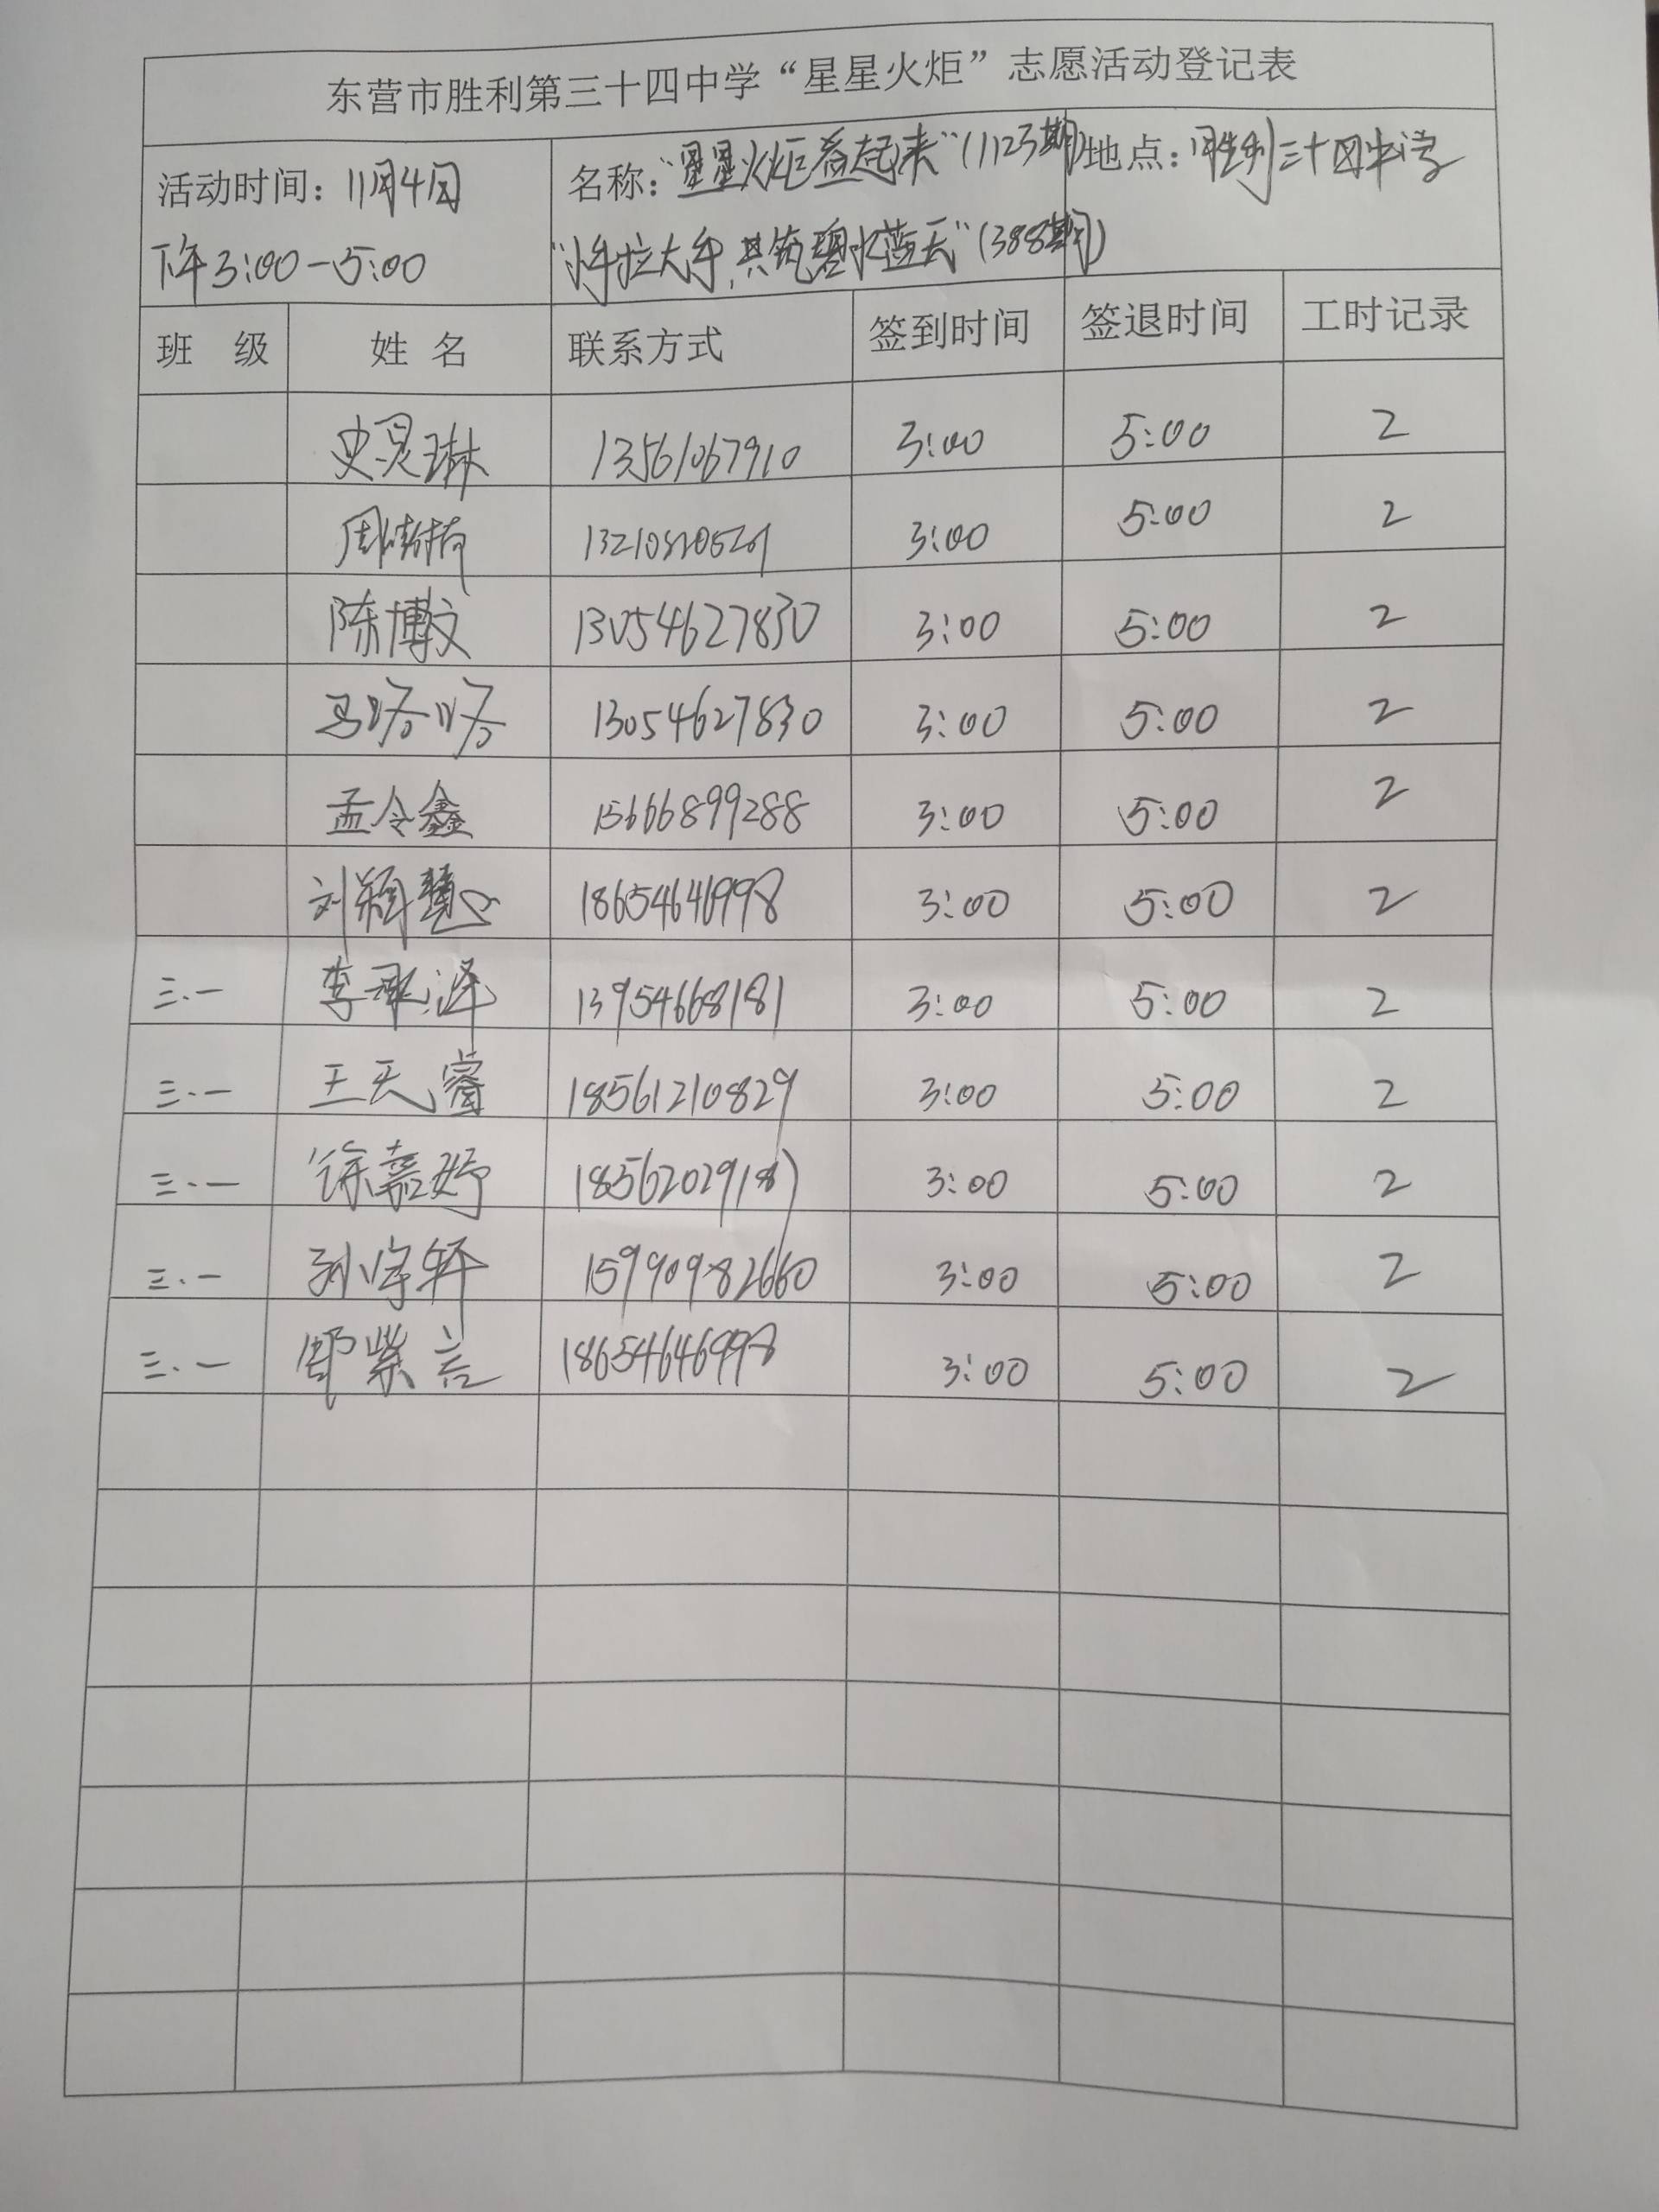 东营市胜利第三十四中学“星星火炬”志愿活动登记表
活动时间：11月4日 名称：“星星火炬益起来”（1123期） 地点：胜利三十四中学
下午3:00-5:00 “小手拉大手，共筑碧水蓝天”（388期）
班 级 姓 名 联系方式 签到时间 签退时间 工时记录
史炅琳 13561067910 3:00 5:00 2
3:00 5:00 2
陈博文 13054627830 3:00 5:00 2
13054627830 3:00 5:00 2
孟令鑫 15666899288 3:00 5:00 2
刘颖慧 18654646998 3:00 5:00 2
三.一 李承泽 13954668181 3:00 5:00 2
三.一 王天睿 18561210829 3:00 5:00 2
三.一 徐嘉妤 3:00 5:00 2
三.一 孙宇轩 15990982660 3:00 5:00 2
三.一 紫言 18654646998 3:00 5:00 2